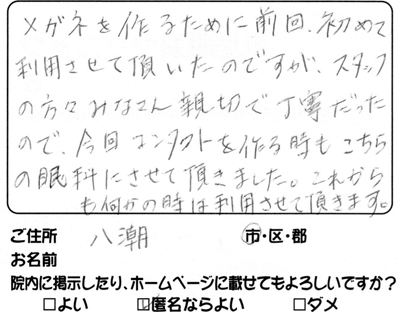 メガネを作るために前回、初めて
利用させて頂いたのですが、スタッフ
の方々みなさん親切で丁寧だった
ので、今回コンタクトを作る時もこちら
の眼科にさせて頂きました。これから
も何かの時は利用させて頂きます。
ご住所 八潮 市・区・郡
お名前
院内に掲示したり、ホームページに載せてもよろしいですか?
□よい ☑匿名ならよい □ダメ